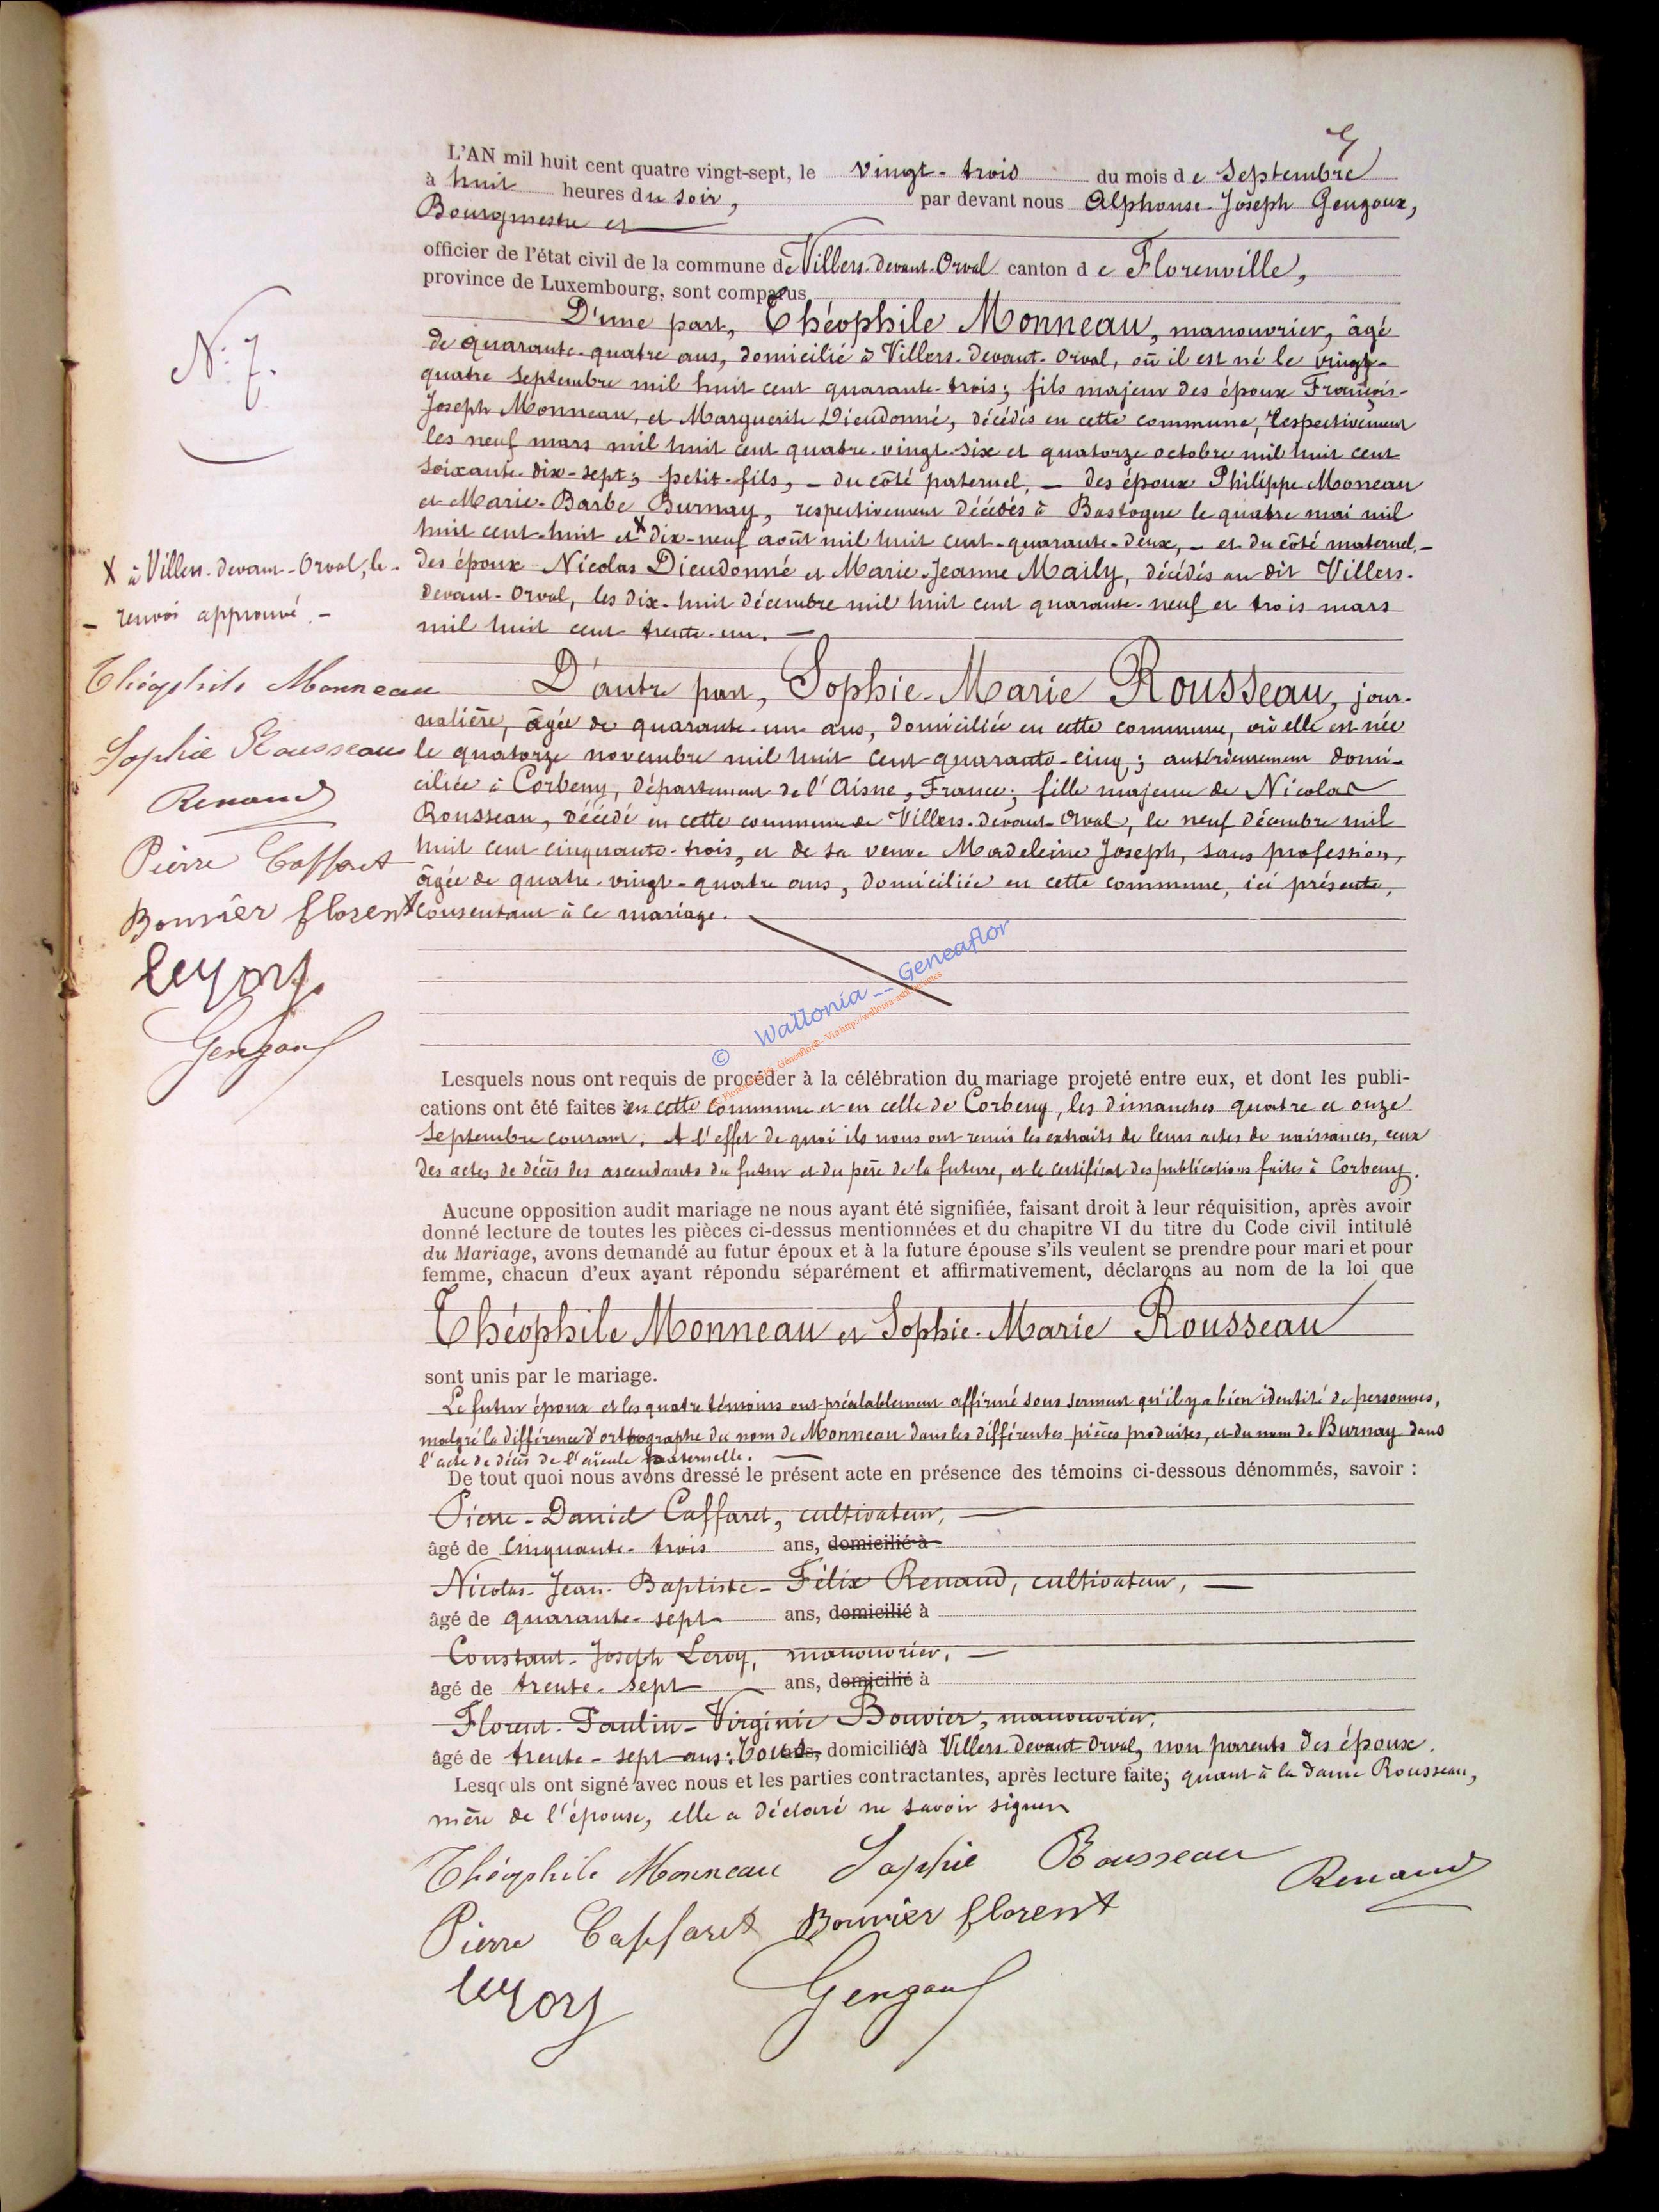 L'AN mil huit cent quatre vingt-sept, le vingt-trois du mois de Septembre
à huit heures du soir, par devant nous Alphonse-Joseph Gengoux,
Bourgmestre et
officier de l'état civil de la commune de Villers-devant-Orval canton de Florenville,
province de Luxembourg, sont comparus
D'une part, Théophile Monneau, manouvrier, âgé
de quarante-quatre ans, domicilié à Villers-devant-Orval, où il est né le vingt-
quatre Septembre mil huit cent quarante-trois; fils majeur des époux François-
Joseph Monneau, et Marguerite Dieudonné, décédés en cette commune, respectivement
les neuf mars mil huit cent quatre-vingt-six et quatorze octobre mil huit cent
soixante-dix-sept; petit-fils, - du côté paternel, - des époux Philippe Monneau
et Marie-Barbe Burnay, respectivement décédés à Bastogne le quatre mai mil
huit cent-huit et X dix-neuf août mil huit cent-quarante-deux, - et du côté maternel, -
des époux Nicolas Dieudonné et Marie-Jeanne Maily, décédés au dit Villers-
devant-Orval, les dix-huit décembre mil huit cent quarante-neuf et trois mars
mil huit cent trente-un. -
D'autre part, Sophie-Marie Rousseau, jour-
nalière, âgée de quarante-un ans, domiciliée en cette commune, où elle est née
le quatorze novembre mil huit cent quarante-cinq; antérieurement domi-
ciliée à Corbeny, département de l'Aisne, France; fille majeure de Nicolas
Rousseau, décédé en cette commune de Villers-devant-Orval, le neuf décembre mil
huit cent cinquante-trois, et de sa veuve Madeleine Joseph, sans profession,
âgée de quatre-vingt-quatre ans, domiciliée en cette commune, ici présente,
consentant à ce mariage.
N: 7.
X à Villers-devant-Orval, le-
- renvoi approuvé. -
Théophile Monneau
Sophie Rousseau
Renaud
Pierre Caffaret
Bouvier florent
Leroy
Gengoux
© Wallonia -- Geneaflor
Lesquels nous ont requis de procéder à la célébration du mariage projeté entre eux, et dont les publi-
cations ont été faites en cette commune et en celle de Corbeny, les dimanches quatre et onze
Septembre courant. A l'effet de quoi ils nous ont remis les extraits de leurs actes de naissances, ceux
des actes de décès des ascendants du futur et du père de la future, et le certificat des publications faites à Corbeny.
Aucune opposition audit mariage ne nous ayant été signifiée, faisant droit à leur réquisition, après avoir
donné lecture de toutes les pièces ci-dessus mentionnées et du chapitre VI du titre du Code civil intitulé
du Mariage, avons demandé au futur époux et à la future épouse s'ils veulent se prendre pour mari et pour
femme, chacun d'eux ayant répondu séparément et affirmativement, déclarons au nom de la loi que
Théophile Monneau et Sophie-Marie Rousseau
sont unis par le mariage.
Le futur époux et les quatre témoins ont préalablement affirmé sous serment qu'il y a bien identité de personnes,
malgré la différence d'orthographe du nom de Monneau dans les différentes pièces produites, et du nom de Burnay dans
l'acte de décès de l'aïeule paternelle.
De tout quoi nous avons dressé le présent acte en présence des témoins ci-dessous dénommés, savoir :
Pierre-Daniel Caffaret, cultivateur, -
âgé de cinquante-trois ans, domicilié à
Nicolas-Jean-Baptiste-Félix Renaud, cultivateur, -
âgé de quarante-sept ans, domicilié à
Constant-Joseph Leroy, manouvrier, -
âgé de trente-sept ans, domicilié à
Florent-Paulin-Virginie Bouvier, manouvrier,
âgé de trente-sept ans; tous ans, domiciliés à Villers devant Orval, non parents des époux.
Lesquels ont signé avec nous et les parties contractantes, après lecture faite; quant à la dame Rousseau,
mère de l'épouse, elle a déclaré ne savoir signer
Théophile Monneau Sophie Rousseau Renaud
Pierre Caffaret Bouvier florent
Leroy Gengoux